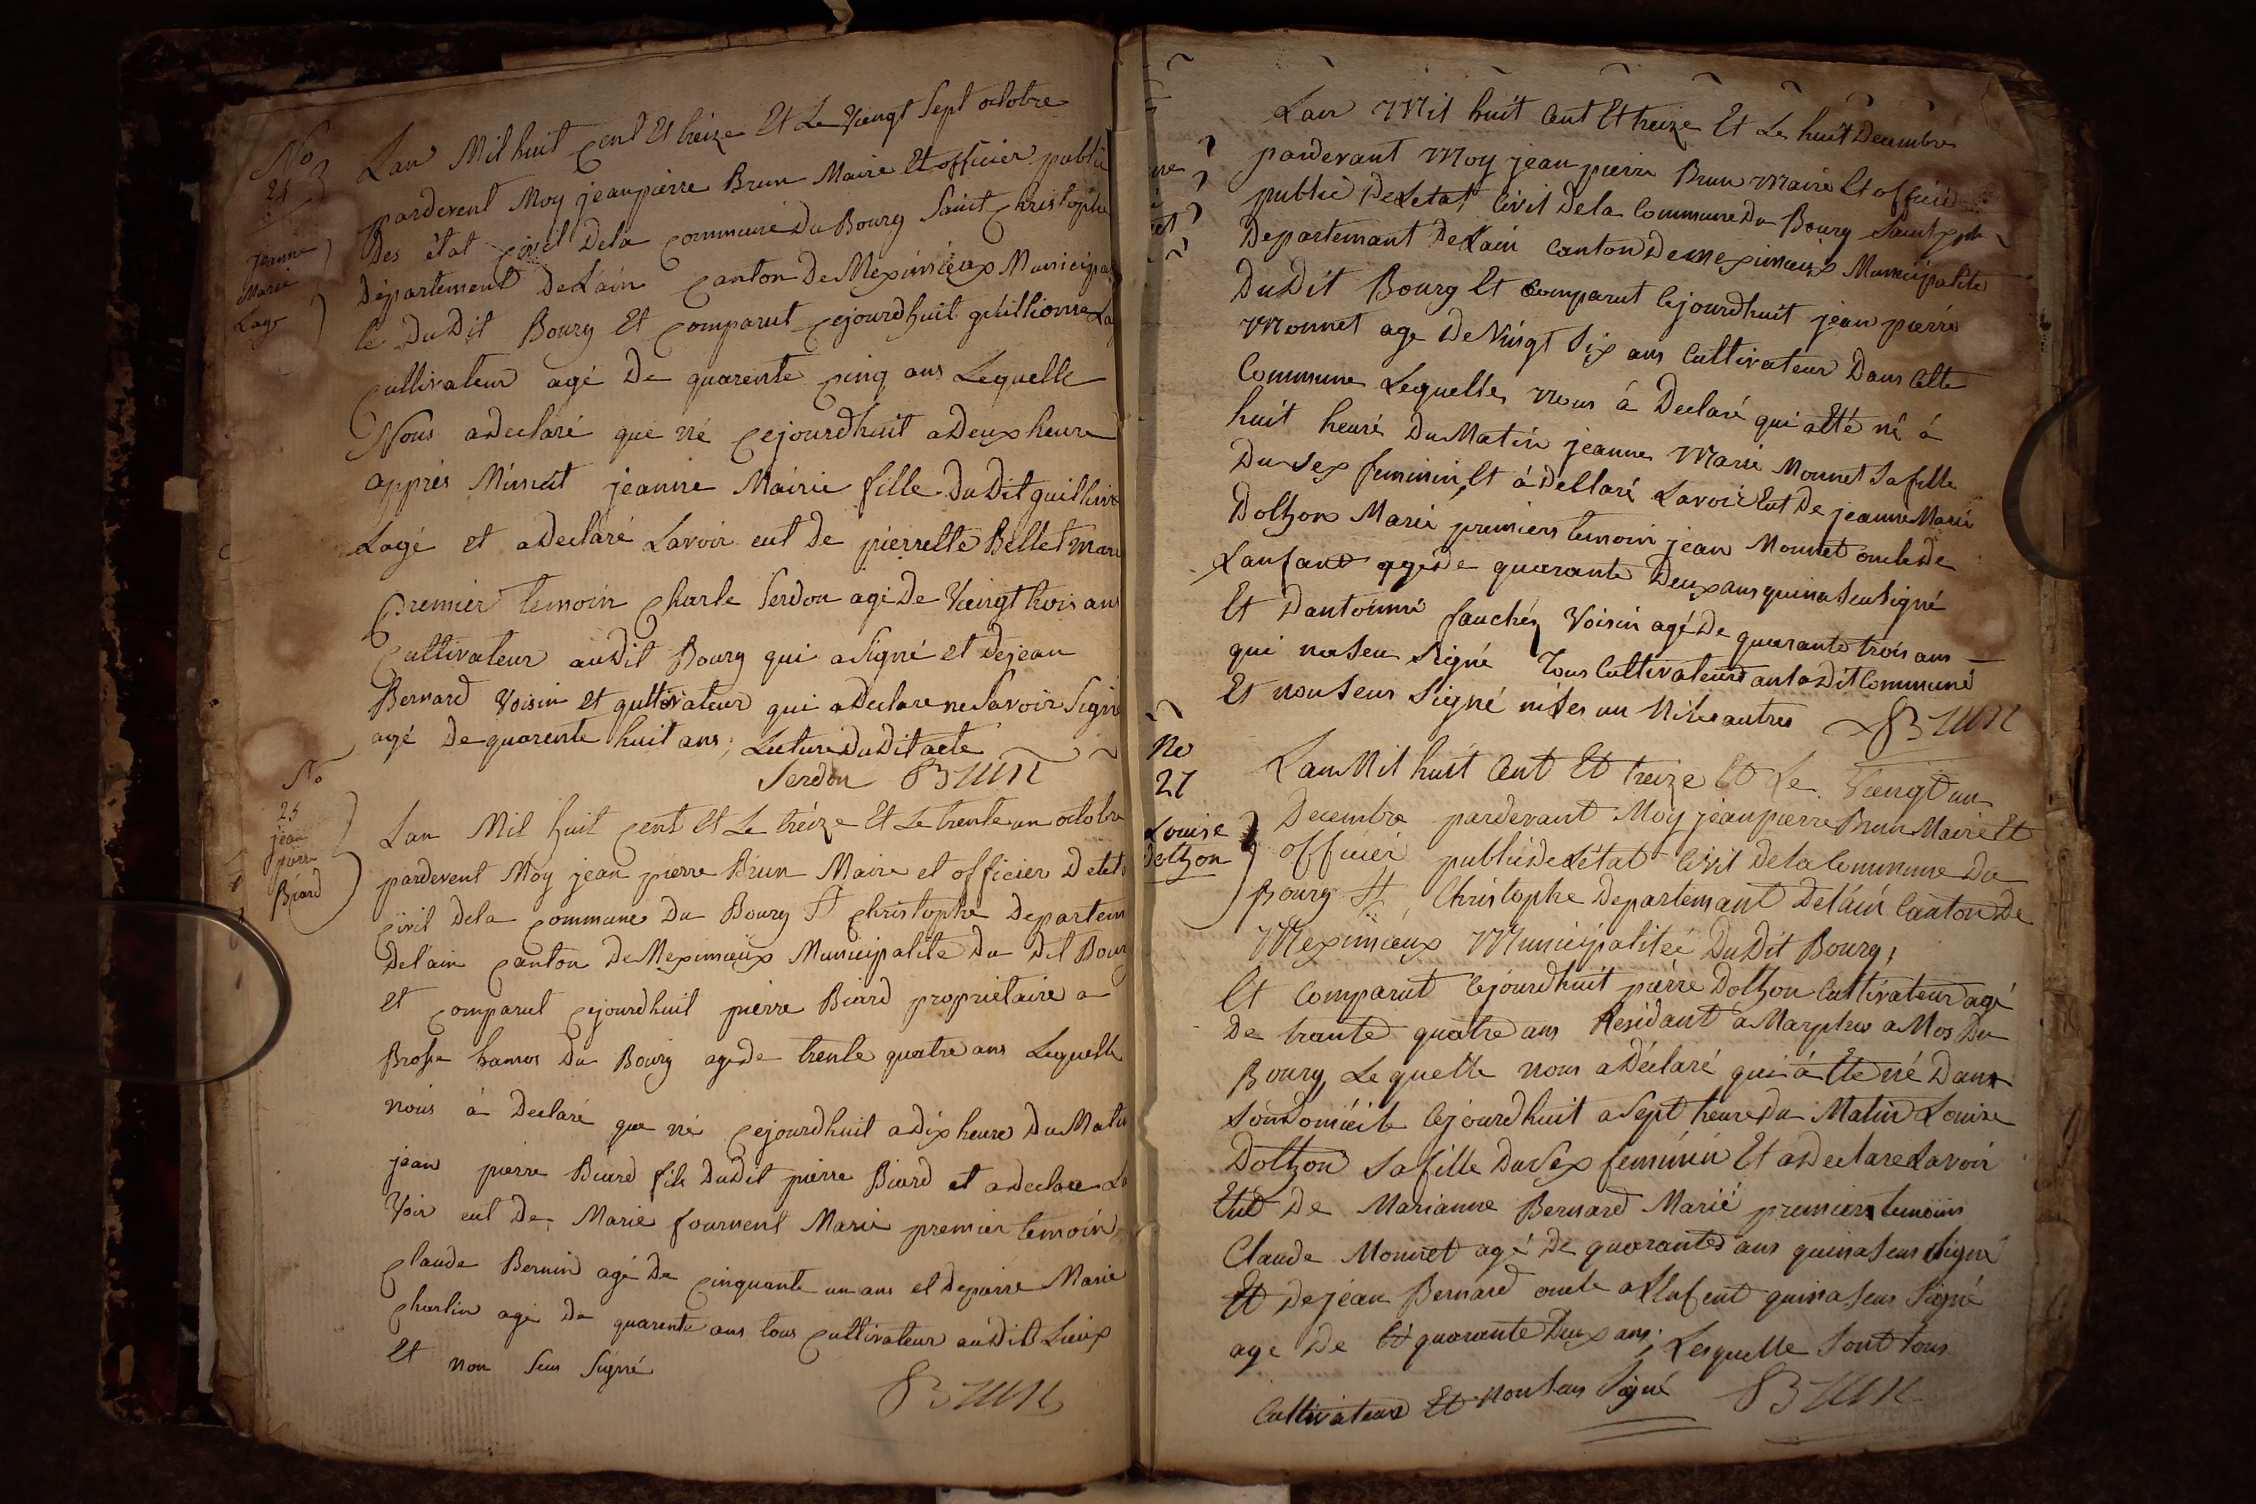 No
24
jeanne
Marie
Lagé
Lan Mil huit cent Et treize Et Le Vaingt Sept octobre
pardevent Moy jeanpierre Brun Maire Et officier public
Des état civil Dela commune Du Bourg Saint Christophe
Département DeLain canton De Meximieux Municipa
le DuDit Bourg Et comparut cejourdhuit
cultivateur agé De quarente cinq ans Lequelle
Nous adeclaré que né cejourdhuit aDeux heure
apprés Minuit jeanne Mairie fille DuDit
Lagé et adeclaré Lavoir eut de pierrette Bellet mari
premier temoin Charle Serdon agé De Vaingt trois ans
cultivateur auDit Bourg qui aSigné et Dejean
Bernard Voisin et qultivateur qui aDeclare ne Savoir Signé
agé De quarente huit ans; Lecture DuDit acte
Serdon Brun
No
25
jean
pierre
Biard
Lan Mil huit cent Et Le tréize Et Le trente un octobre
pardevent Moy jean pierre Brun Maire et officier D etat
civil Dela commune Du Bourg St Christophe Departem
Delain canton De Meximieux Municipalite Du Dit Bourg
et comparut cejourdhuit pierre Biard propriétaire a
Brosse hamos Du Bourg agé de trente quatre ans Lequelle
nous à Declaré que né cejourdhuit a Dix heure Du Matin
jean pierre Biard fils DuDit pierre Biard et a Declare La
Voir eut De Marie fournent Marié premier temoin
claude Bernin agé De cinquante un ans et De pierre Marie
charlin agé De quarente ans tous cultivateur auDit Lieux
Et non Seus Signé
Brun
Lan Mil huit Cent Et treize Et Le huit Decembre
pardevant Moy jean pierre Brun Maire Et officier
public De Létat Civil Dela Commune Du Bourg Saint
Departemant De Lain Canton De meximieux Municipalite
DuDit Bourg Et Comparut Cejourdhuit jean pierre
Monnet age De Vingt Six ans Cultivateur Dans Cette
Commune Lequelle nous à Declaré qui atté né à
huit heure Du Matin jeanne Marie Monnet Sa fille
Du Sex feminin, Et à Dellaré Lavoir Eut De jeanne Marie
Dolhon Marié premiers temoin jean Monnet oncle de
Lanfant agé de quarante Deux ans qui na Seu Signé
Et Dantoinne fauchér Voisin agé De quarante trois ans
qui na Seu Signé Tous Cultivateurs Commune
Et non Seus Signé ni Les un Ni Les autres Brun
No
27
Louise
Dolhon
Lan Mil huit Cent Et treize Et Le Vaingt un
Decembre pardevant Moy jean pierre Brun Maire Et
officier public de Létat Civil de la Commune Du
Bourg St Christophe Departemant Delain Canton De
Meximieux Municipalitéé DuDit Bourg,
Et Comparut Cejourdhuit pierre Dolhon Cultivateur agé
De trante quatre ans Residant à aMos Du
Bourg Lequelle nous a Déclaré qui à Ete né Dans
Son Domicile Cejourdhuit a Sept heure Du Matin Louise
Dolhon Sa fille Du Sex feminin Et a Declare Lavoir
Eut De Marianne Bernard Marié premiers temoins
Claude Monnet agé De quarante ans qui na Seus Signé
Et De jéan Bernard oncle a Lenfent qui na Seus Signé
age De quarante Deux ans; Lesquelle Sont tous
Cultivateur Et non Seus Signé Brun